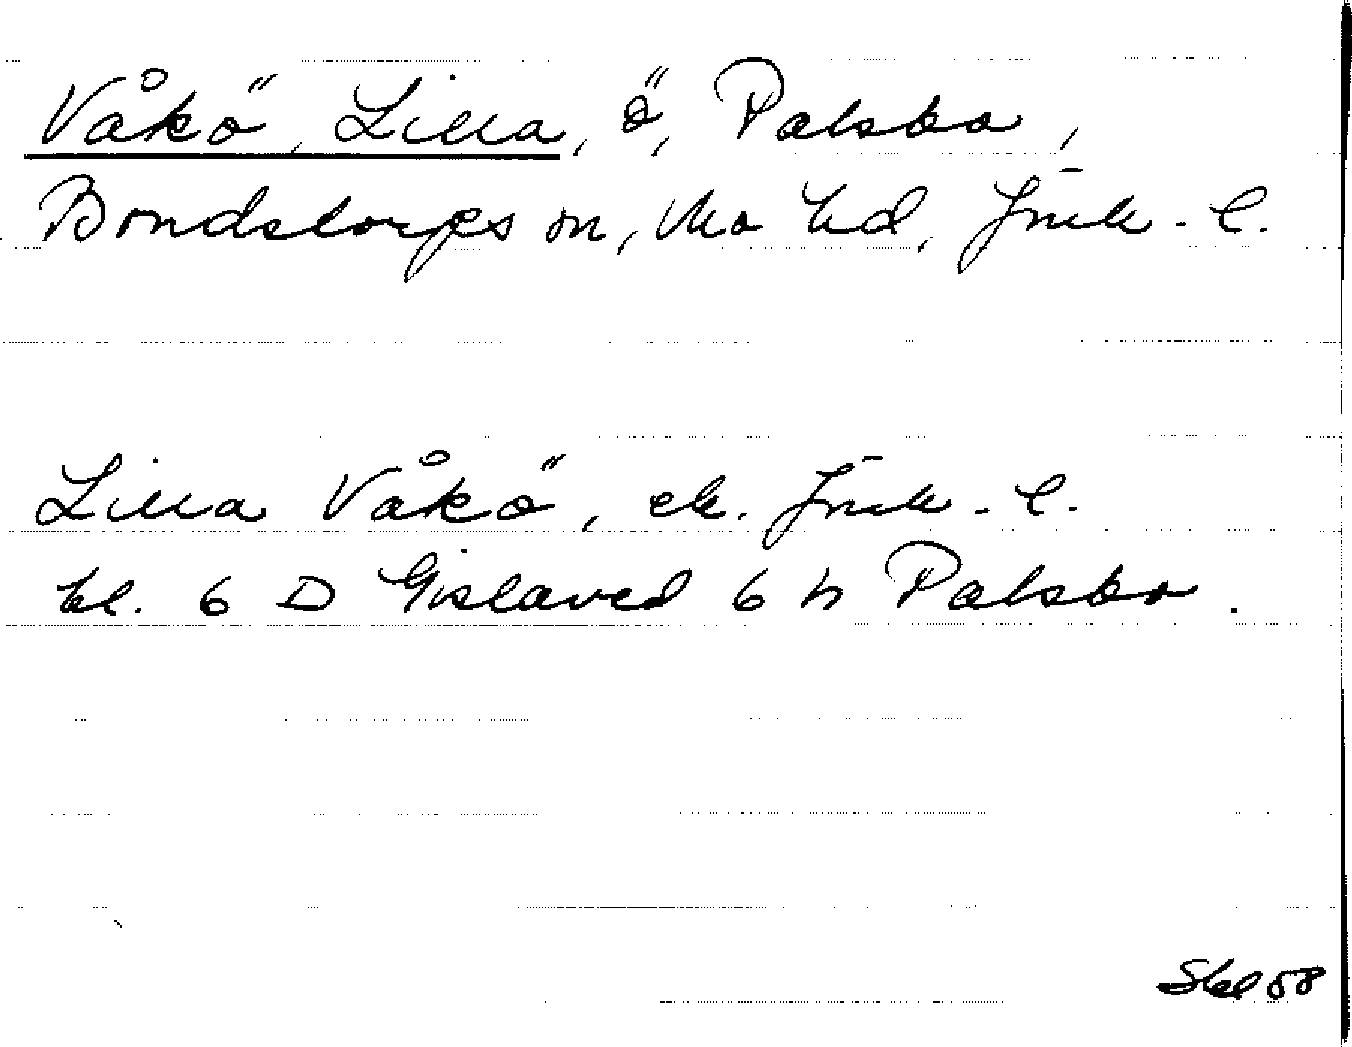 Våkö, Lilla, ö, Palsbo,
Bondstorps sn, Mo hd, Jnk. l.
Lilla Våkö, ek. Jnk. l.
bl. 6 D Gislaved 6 h Palsbo.